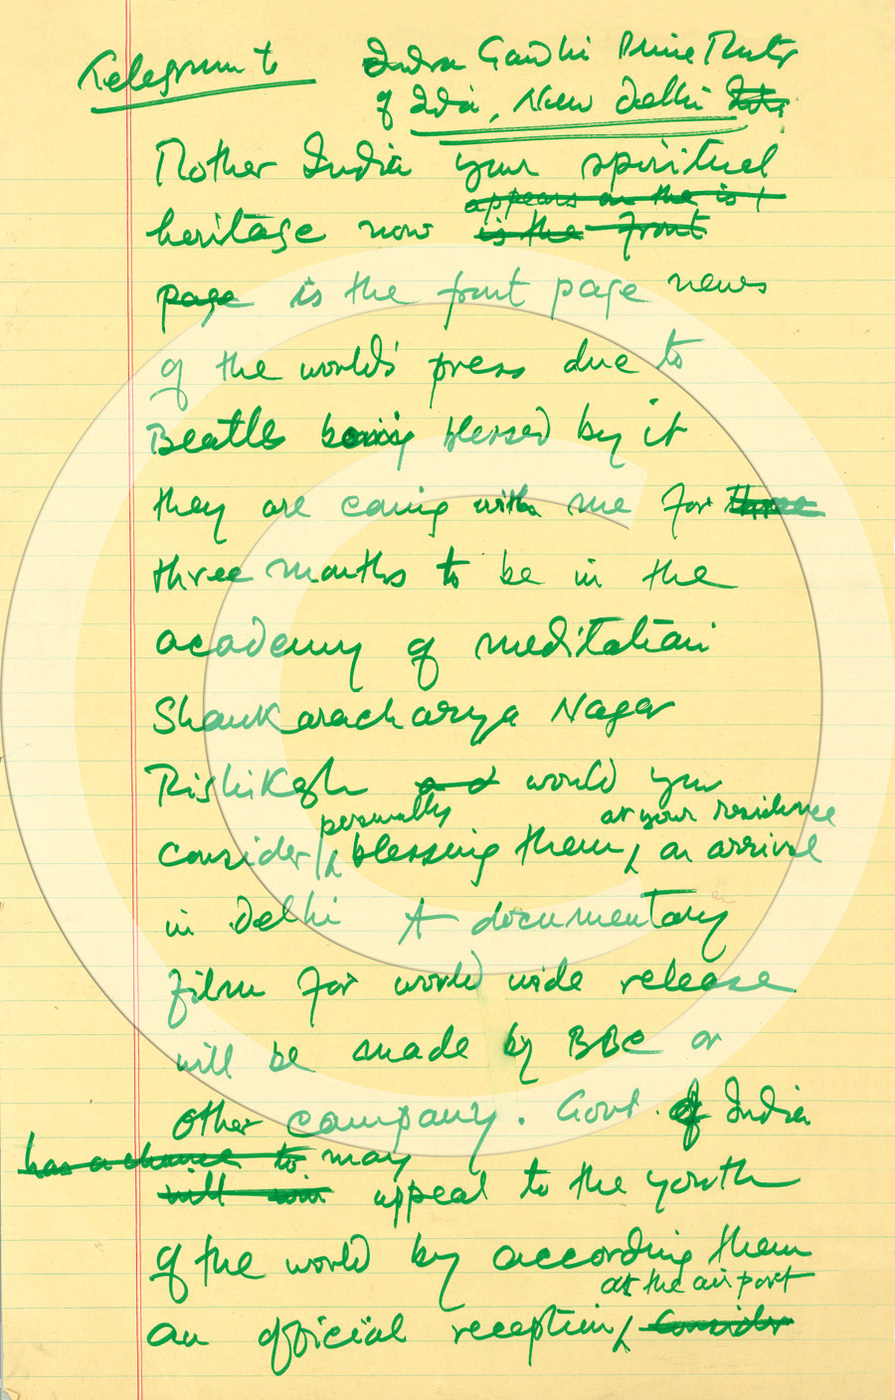 Telegram to Indra Gandhi Prime Minister
of India, New Delhi
Mother India your spirituel
appears on the is
heritage now is the front
page is the front page news
of the world's press due to
Beatles being blessed by it
they are coming with me for three
three months to be in the
academy of meditation
Shankaracharya Nagar
Rishikesh and would you
personally at your residence
consider blessing them, on arrival
in Delhi A documentary
film for world wide release
will be made by BBC or
other company. Govt. of India
has a chance to may
will win appeal to the youth
of the world by according them
at the airport
an official reception, consider